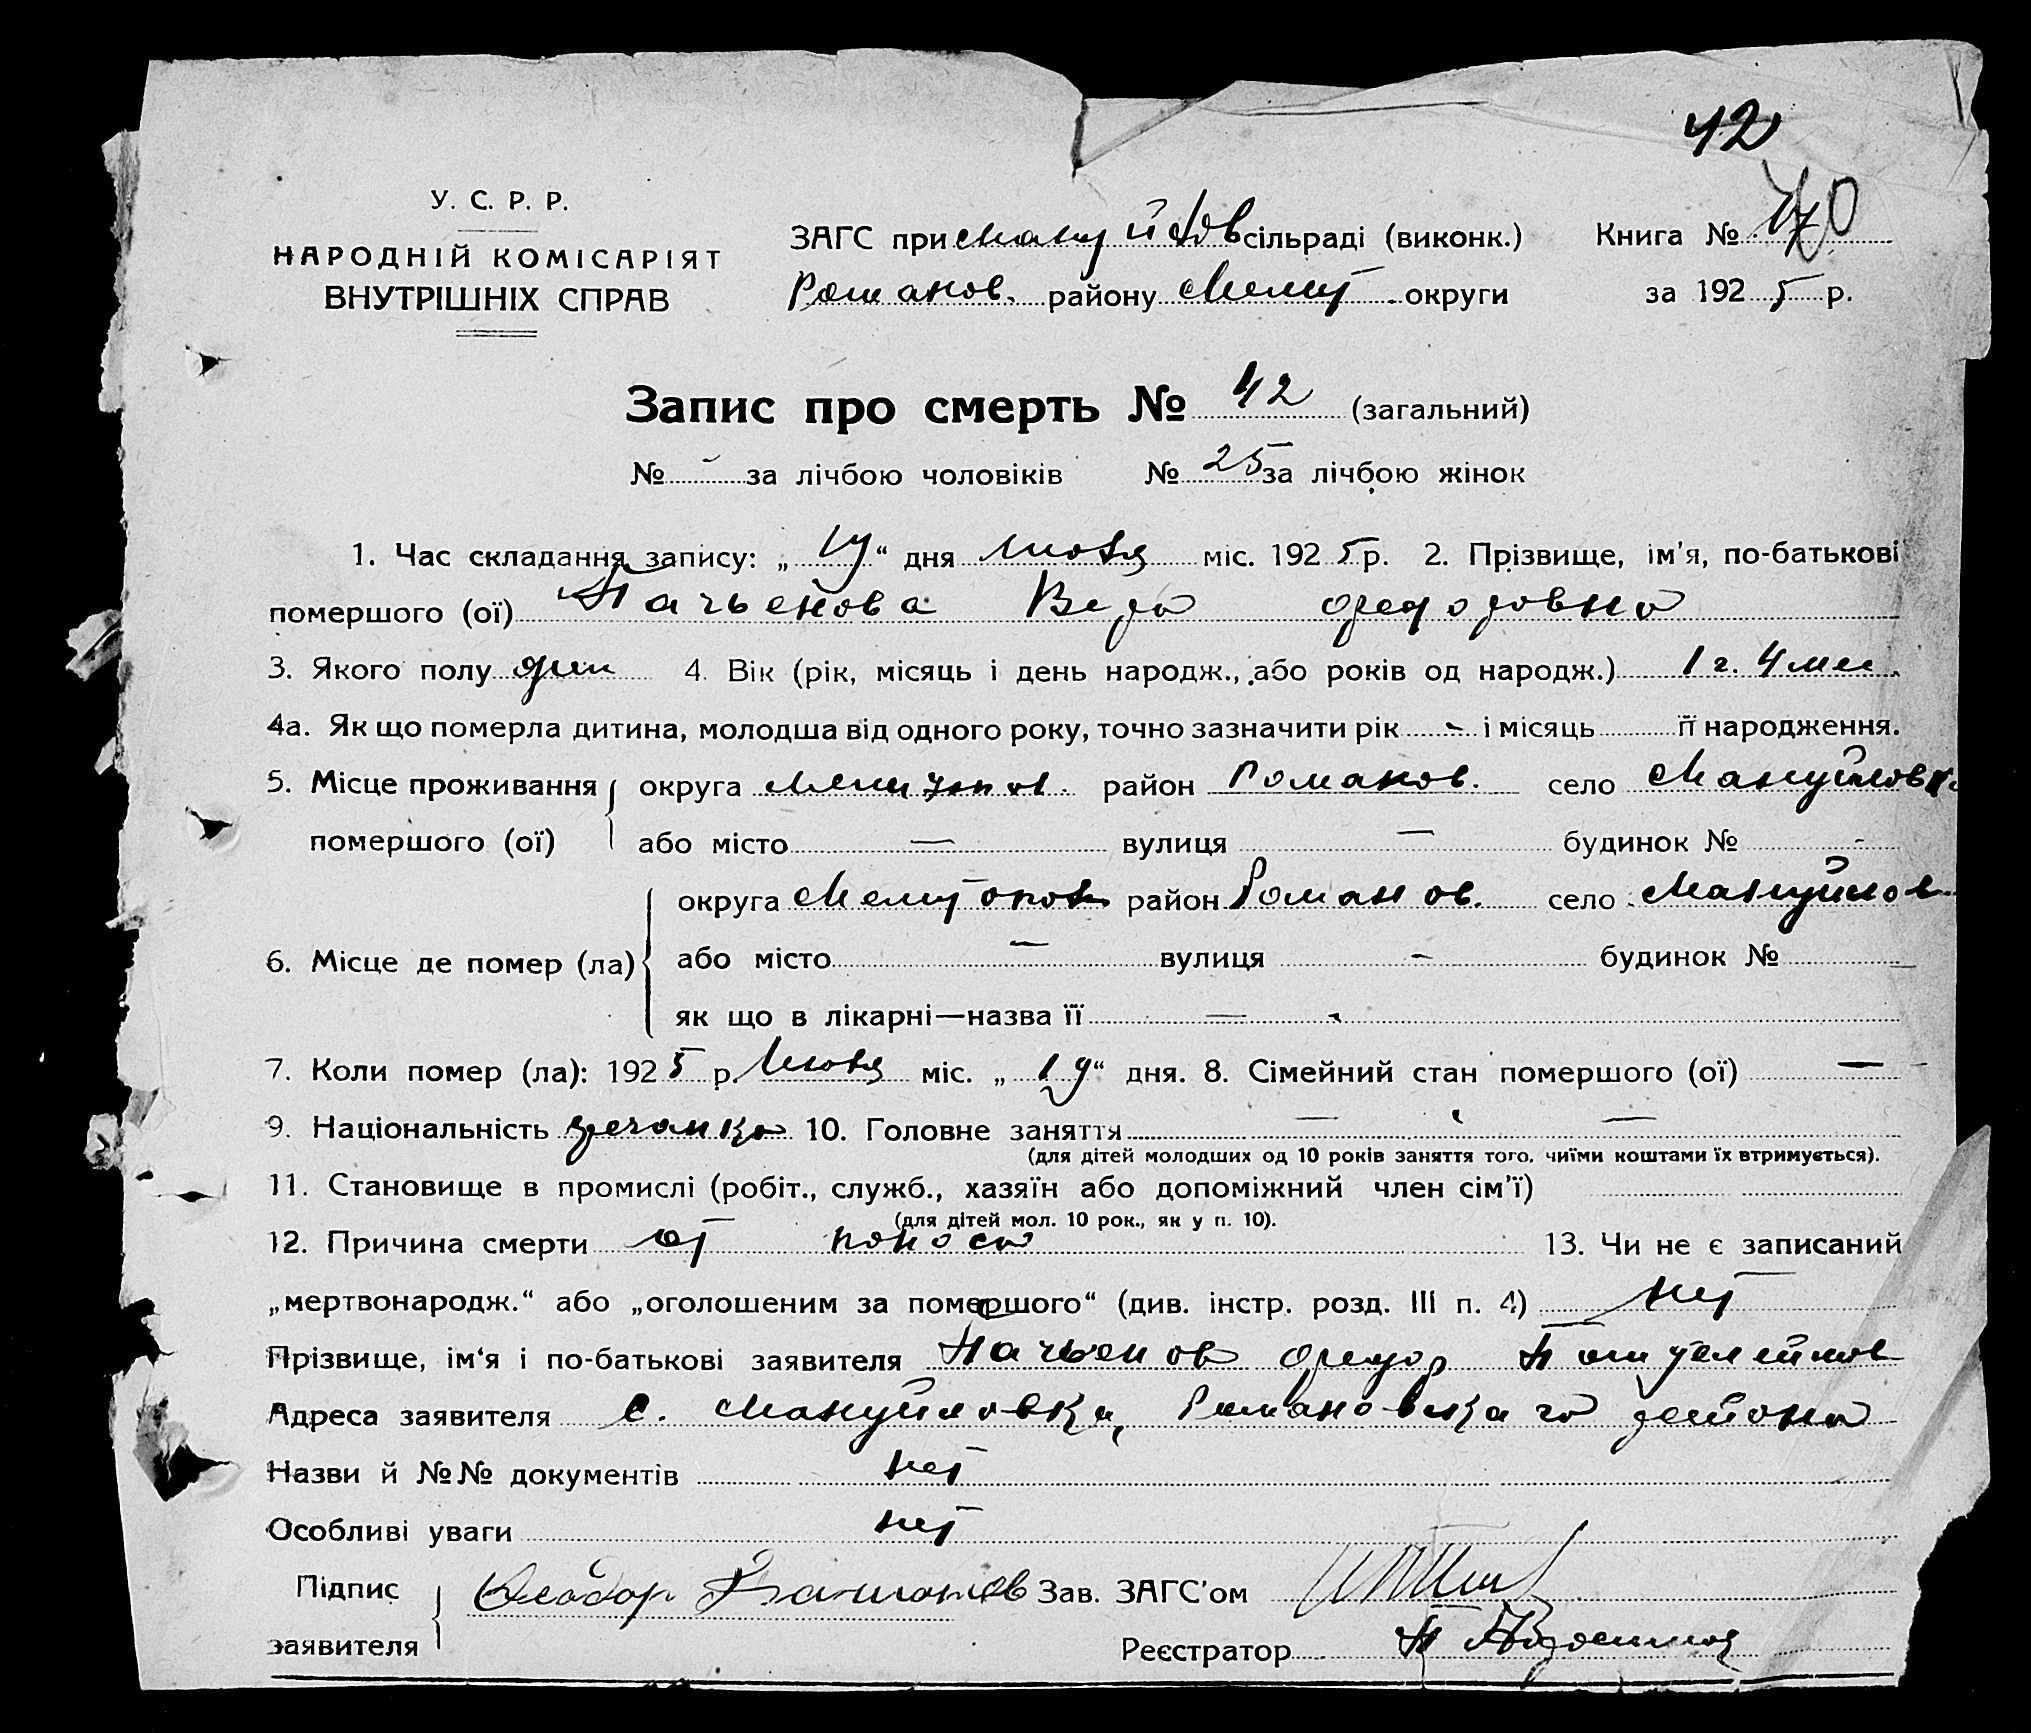 42
У. С. Р. Р.
НАРОДНІЙ КОМІСАРІЯТ
ВНУТРІШНІХ СПРАВ
ЗАГС при Мануйлов сільраді (виконк.)
Романов. району Мелит. округи
Книга №
за 1925 р.
Запис про смерть № 42 (загальний)
№ - за лічбою чоловіків № 25 за лічбою жінок
1. Час складання запису: „ “ дня Июля міс. 1925 р. 2. Прізвище, ім'я, по-батькові
помершого (ої) Пачьенова Вера Федоровна
3. Якого полу жен 4. Вік (рік, місяць і день народж., або років од народж.) 1 г. 4 мес.
4а. Як що померла дитина, молодша від одного року, точно зазначити рік - і місяць її народження.
5. Місце проживання округа район Романов. село Мануйловка
помершого (ої) або місто — вулиця — будинок № -
6. Місце де помер (ла) округа Мелитопов район Романов. село Мануйлов
або місто — вулиця - будинок № —
як що в лікарні—назва її —
7. Коли помер (ла): 1925 р. Июля міс. „ “ дня. 8. Сімейний стан помершого (ої) —
9. Національність гречанка 10. Головне заняття — —
(для дітей молодших од 10 років заняття того, чиїми коштами їх втримується).
11. Становище в промислі (робіт., служб., хазяїн або допоміжний член сім'ї)
(для дітей мол. 10 рок., як у п. 10).
12. Причина смерти от поноса 13. Чи не є записаний
„мертвонародж.“ або „оголошеним за помершого“ (див. інстр. розд. III п. 4) нет
Прізвище, ім'я і по-батькові заявителя Пачьенов Федор Пантелеймов
Адреса заявителя с. Мануйловка, Романовскаго района
Назви й №№ документів нет
Особливі уваги нет
Підпис Зав. ЗАГС'ом
заявителя Реєстратор